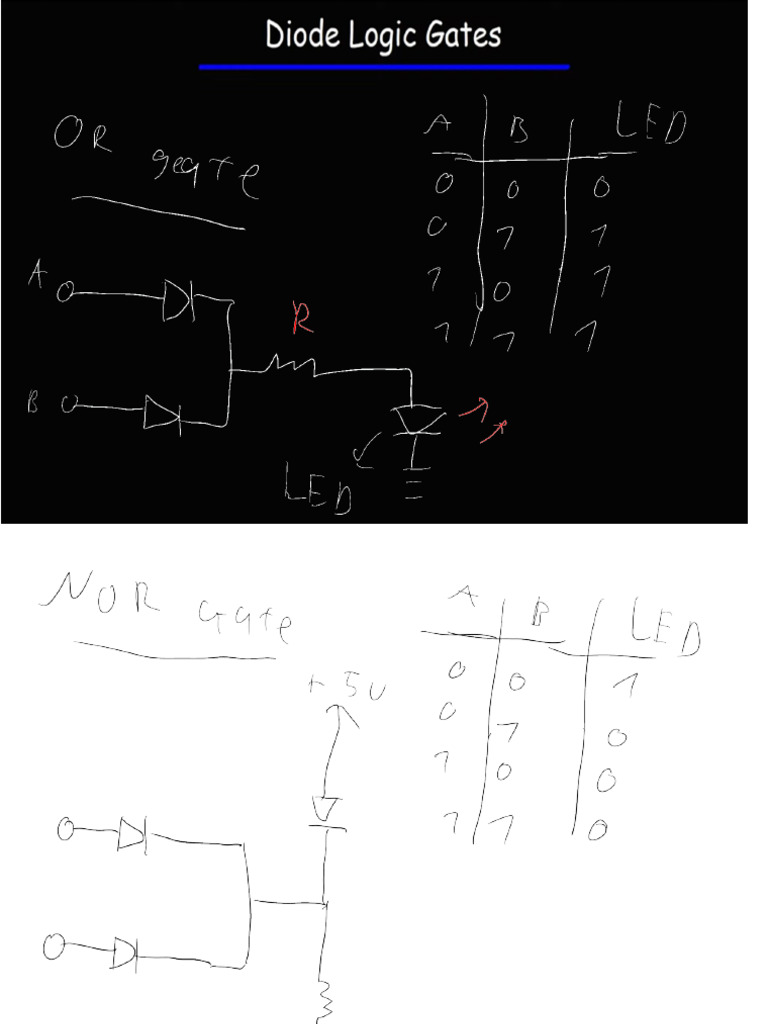 Diode Logic Gates
OR gate
A B LED
0 0 0
0 1 1
1 0 1
1 1 1
A
R
B
LED
NOR Gate
A B LED
+5V
0 0 1
0 1 0
1 0 0
1 1 0